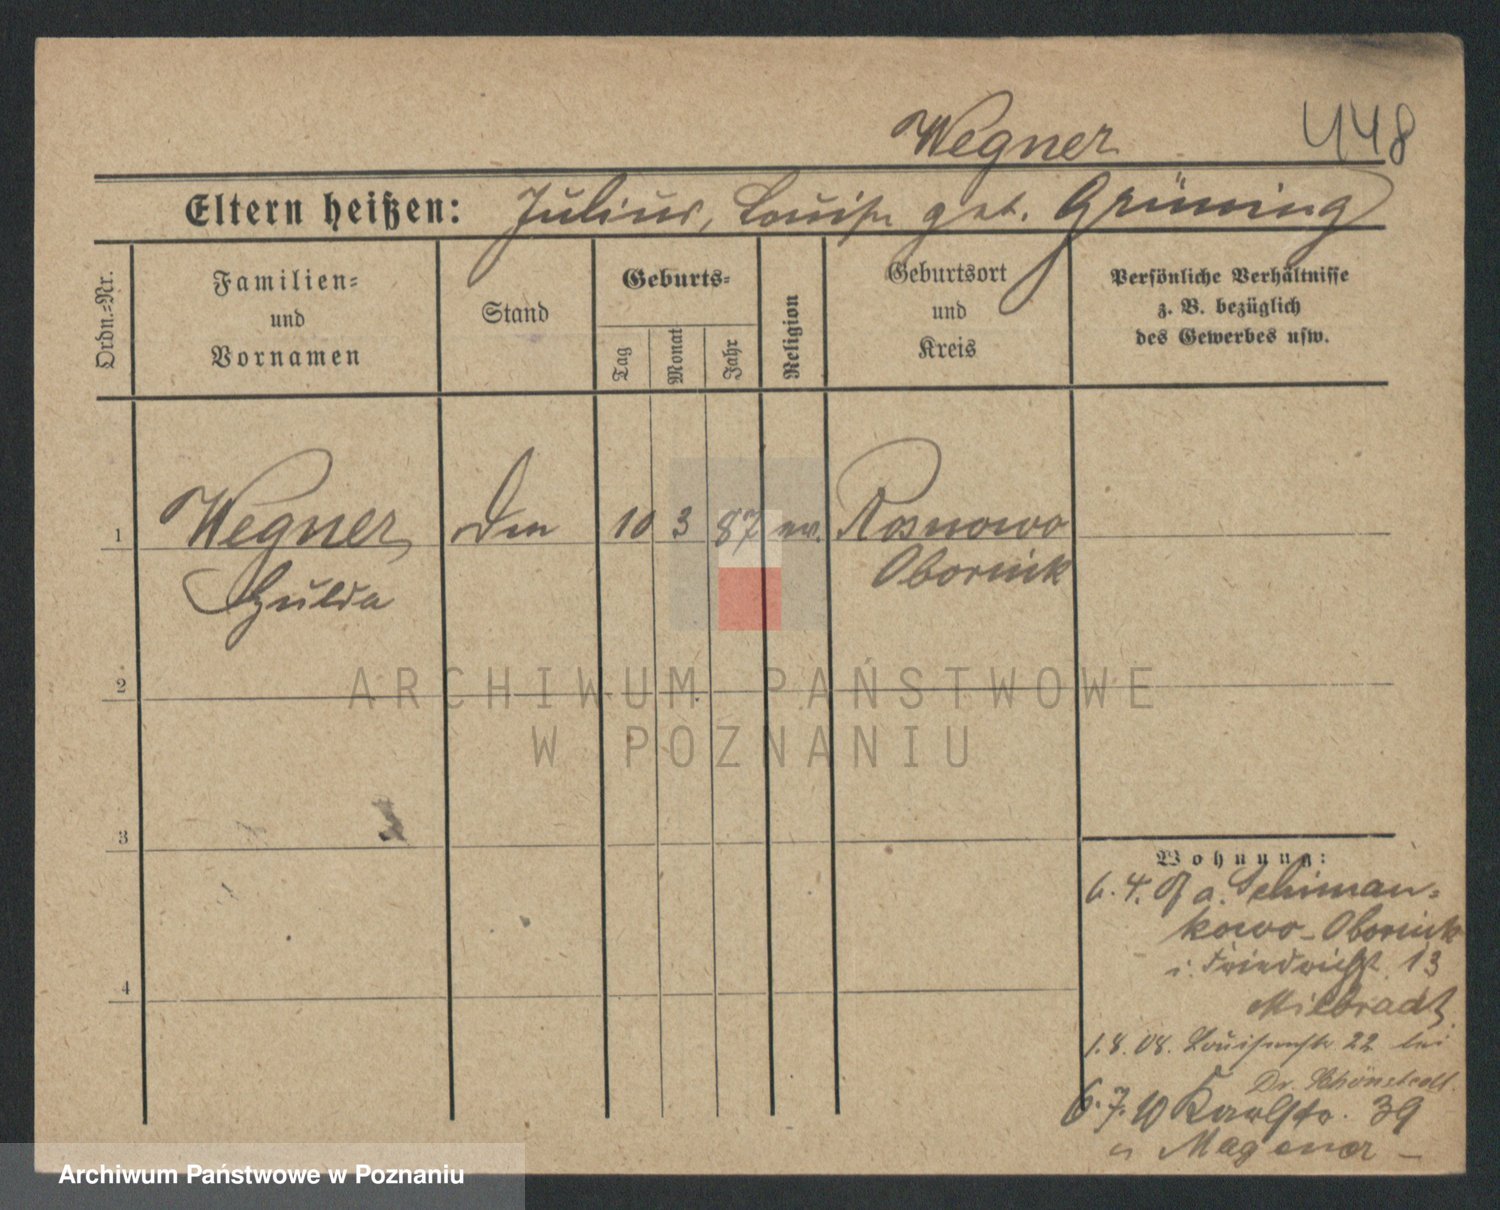 Wegner 448
Eltern heißen: Julius, Louise geb. Grüning
Ordn.=Nr.
Familien=
und
Vornamen
Stand
Geburts=
Tag
Monat
Jahr
Religion
Geburtsort
und
Kreis
Persönliche Verhältnisse
z. B. bezüglich
des Gewerbes usw.
1 Wegner, 10 3 87 ev. Rosnowo
Hulda Obornik
2
3
4
Wohnung:
6. 4. a. Schiman=
kowo-Obornik
i. Friedrichst. 13
Milbradt
1.8.08. Louisenstr 22 bei
Dr. Schönstedt.
6.7.10 Karlstr. 39
Magener
ARCHIWUM PAŃSTWOWE
W POZNANIU
Archiwum Państwowe w Poznaniu